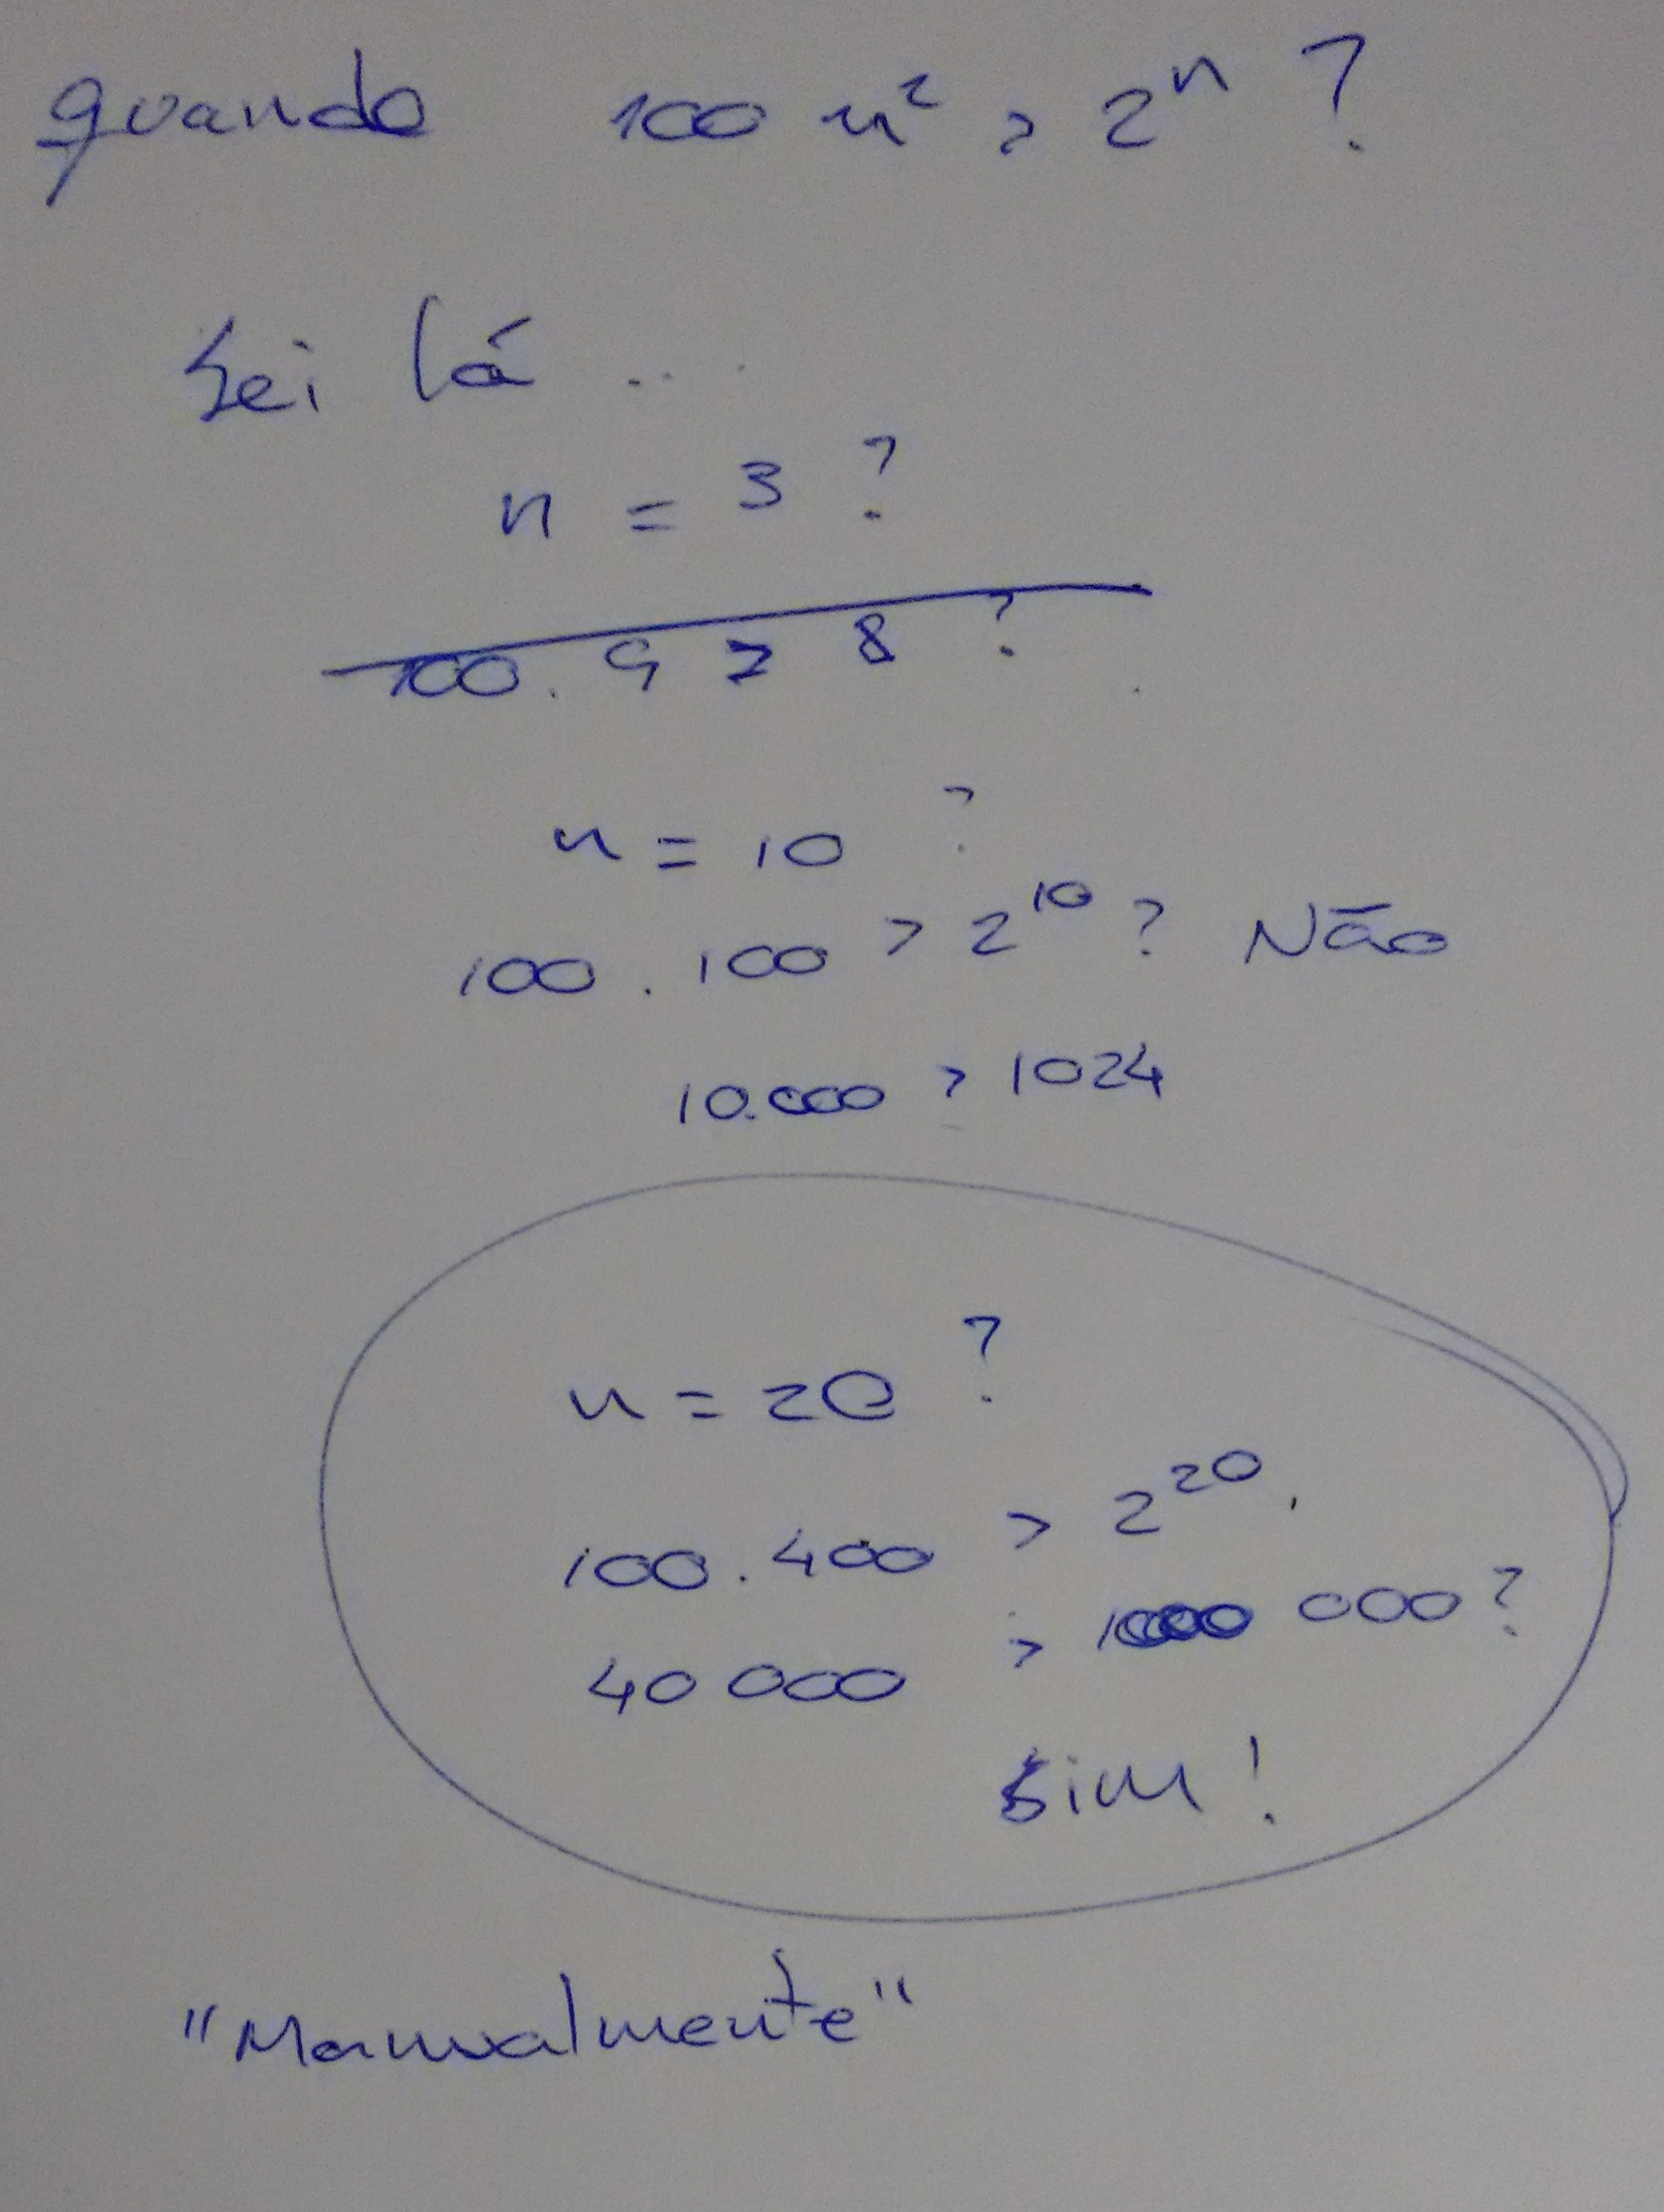 quando 100 n² > 2ⁿ ?
Sei lá ...
n = 3 ?
100 . 9 > 8 ?
n = 10 ?
100 . 100 > 2¹⁰ ? Não
10.000 > 1024
n = 20 ?
100 . 400 > 2²⁰ .
40 000 > 1000 000 ?
Sim !
"Manualmente"